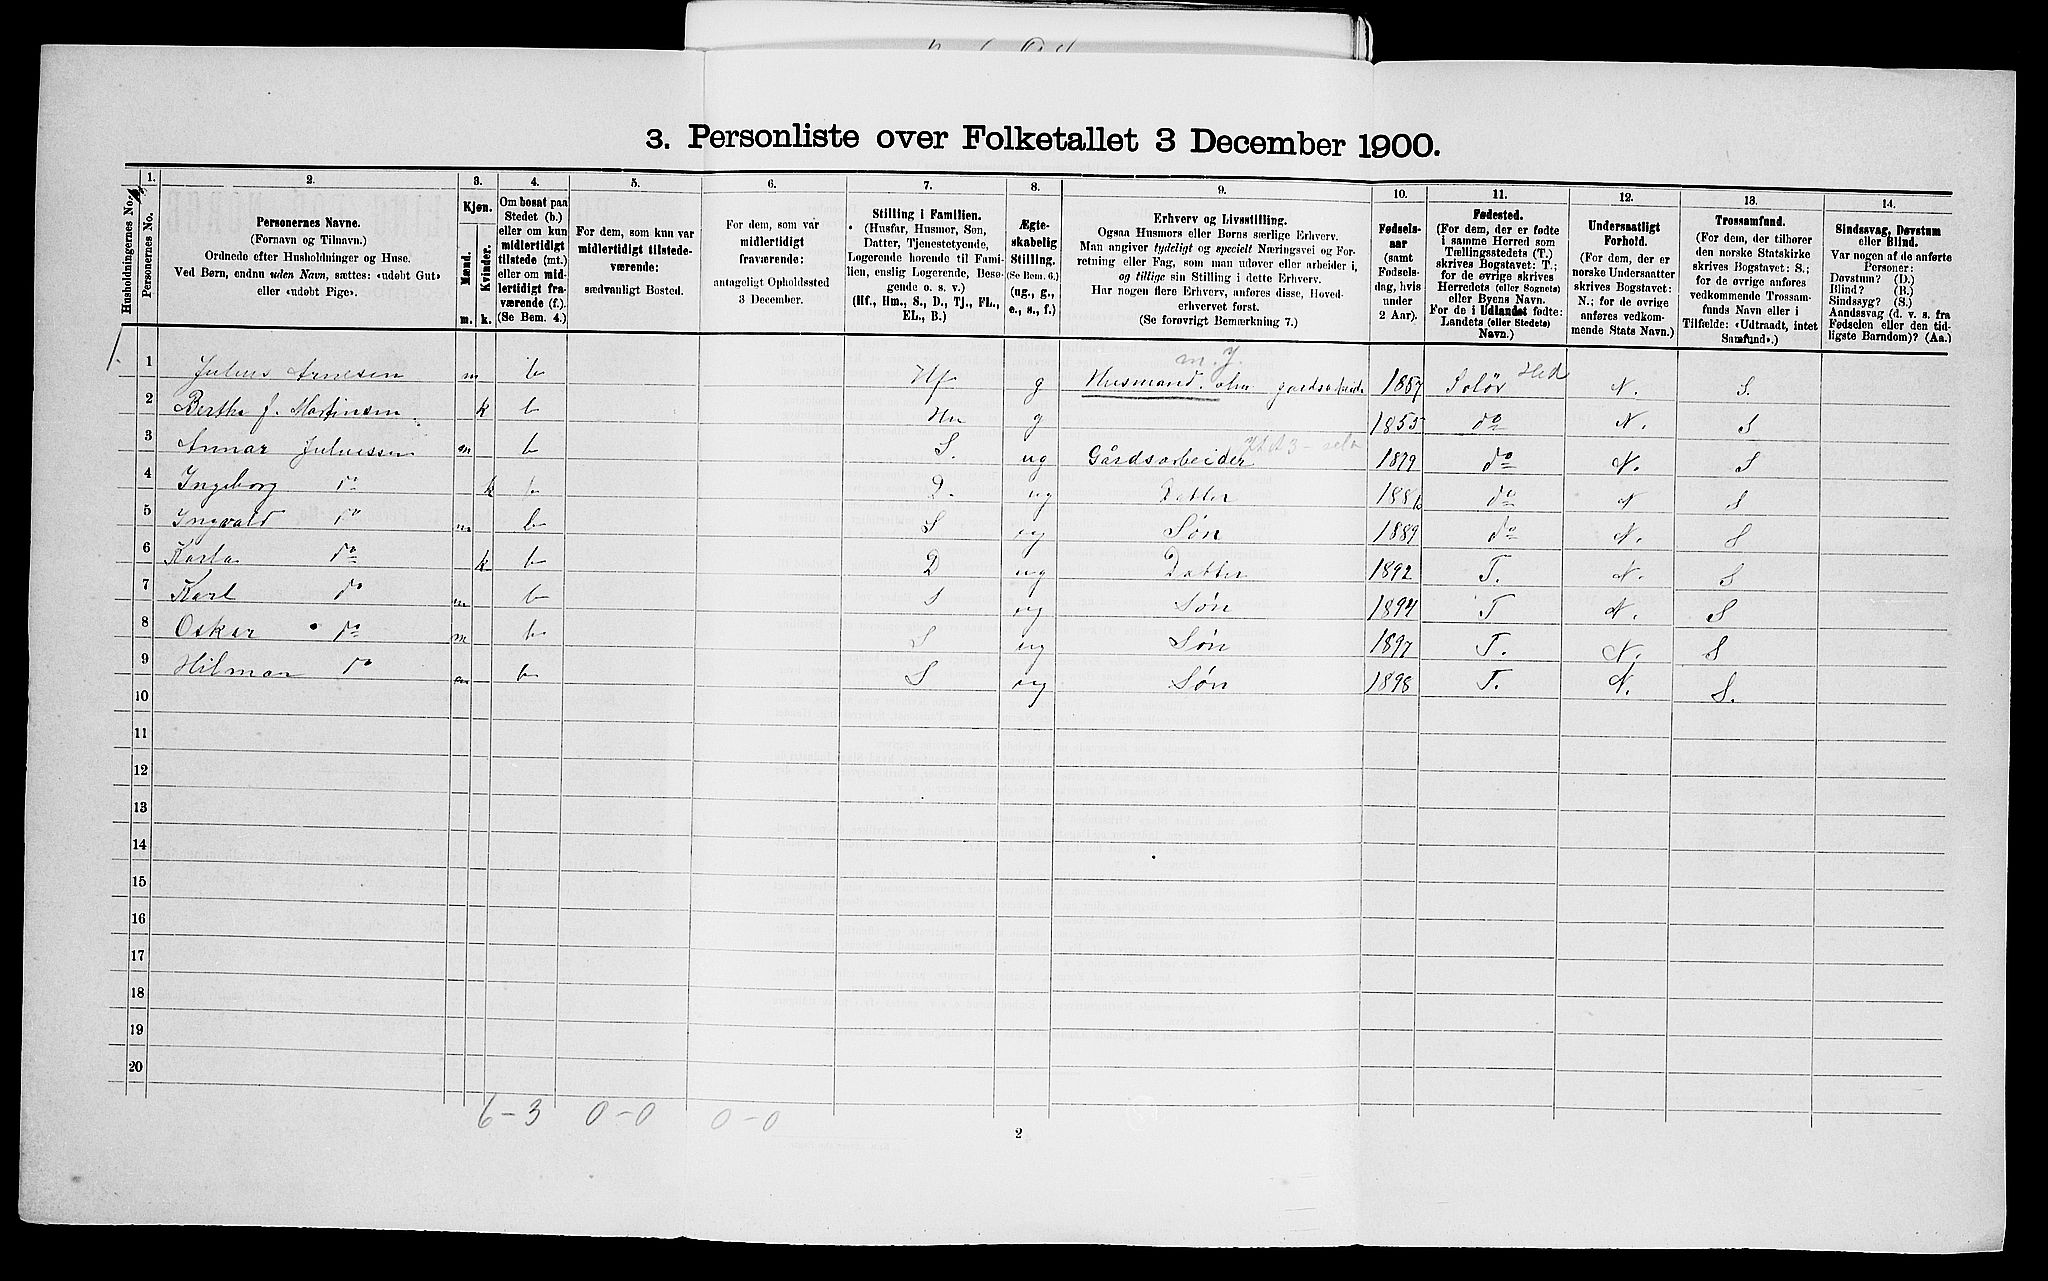 3. Personliste over Folketallet 3 December 1900.
Husholdningernes No.
1. Personernes No.
2. Personernes Navne.
(Fornavn og Tilnavn.)
Ordnede efter Husholdninger og Huse.
Ved Børn, endnu uden Navn, sættes: «udøbt Gut»
eller «udøbt Pige».
3. Kjøn.
Mænd. m.
Kvinder. k.
4. Om bosat paa
Stedet (b.)
eller om kun
midlertidigt
tilstede (mt.)
eller om mid-
lertidigt fra-
værende (f.).
(Se Bem. 4.)
5. For dem, som kun var
midlertidigt tilstede-
værende:
sædvanligt Bosted.
6. For dem, som var
midlertidigt
fraværende:
antageligt Opholdssted
3 December.
7. Stilling i Familien.
(Husfar, Husmor, Søn,
Datter, Tjenestetyende,
Logerende hørende til Fami-
lien, enslig Logerende, Besø-
gende o. s. v.)
(Hf., Hm., S., D., Tj., FL.,
EL., B.)
8. Ægte-
skabelig
Stilling.
(Se Bem. 6.)
(ug., g.,
e., s., f.)
9. Erhverv og Livsstilling.
Ogsaa Husmors eller Børns særlige Erhverv.
Man angiver tydeligt og specielt Næringsvei og For-
retning eller Fag, som man udøver eller arbeider i,
og tillige sin Stilling i dette Erhverv.
Har nogen flere Erhverv, anføres disse, Hoved-
erhvervet først.
(Se forøvrigt Bemærkning 7.)
10. Fødsels-
aar
(samt
Fødsels-
dag, hvis
under
2 Aar).
11. Fødested.
(For dem, der er fødte
i samme Herred som
Tællingsstedets (T.)
skrives Bogstavet: T.;
for de øvrige skrives
Herredets (eller Sognets)
eller Byens Navn.
For de i Udlandet fødte:
Landets (eller Stedets)
Navn.)
12. Undersaatligt
Forhold.
(For dem, der er
norske Undersaatter
skrives Bogstavet:
N.; for de øvrige
anføres vedkom-
mende Stats Navn.)
13. Trossamfund.
(For dem, der tilhører
den norske Statskirke
skrives Bogstavet: S.;
for de øvrige anføres
vedkommende Trossam-
funds Navn eller i
Tilfælde: «Udtraadt, intet
Samfund».)
14. Sindssvag, Døvstum
eller Blind.
Var nogen af de anførte
Personer:
Døvstum? (D.)
Blind? (B.)
Sindssyg? (S.)
Aandssvag (d. v. s. fra
Fødselen eller den tid-
ligste Barndom)? (Aa.)
m. J.
1 Julius Arnesen m b Hf g Husmand gardsarbeide 1857 Solør Hed N. S.
2 Berthe J. Martinsen k b Hm g 1855 do N. S
3 Annar Juliussen m b S. ug Gårdsarbeider 1879 do N. S
4 Ingeborg do k b D. ug Datter do N S
5 Ingvald do m b S ug Søn 1889 do N. S
6 Karla do k b D ug Datter 1892 T. N. S
7 Karl do m b S ug Søn 1894 T N. S
8 Oskar do m b S ug Søn 1897 T. N. S
9 Hilmar do m b S ug Søn 1898 T. N. S.
10
11
12
13
14
15
16
17
18
19
20
6-3 0-0 0-0
2